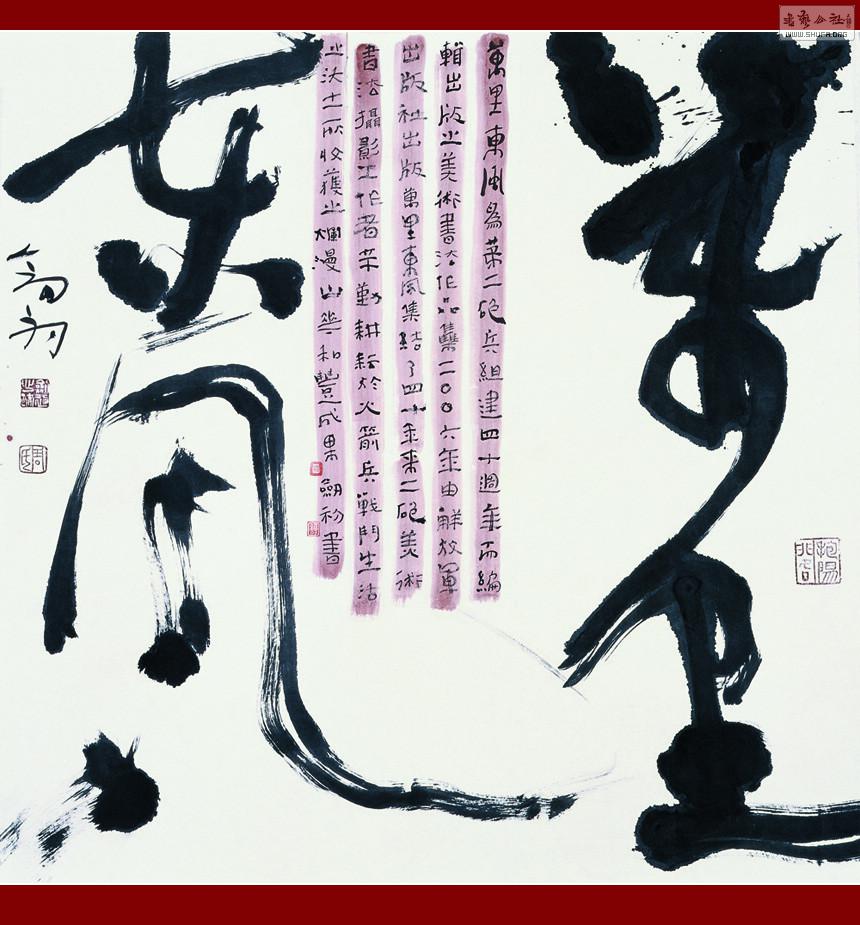 萬里
東風
萬里東風為第二砲兵組建四十週年而編
輯出版之美術書法作品雧二00六年由解放軍
出版社出版萬里東風集結了四十年來二砲美術
書法攝影工作者辛勤耕耘於火箭兵戰鬥生活
之沃土所收獲之爛漫山華和豐成果 劒初書
WWW.SHUFA.ORG